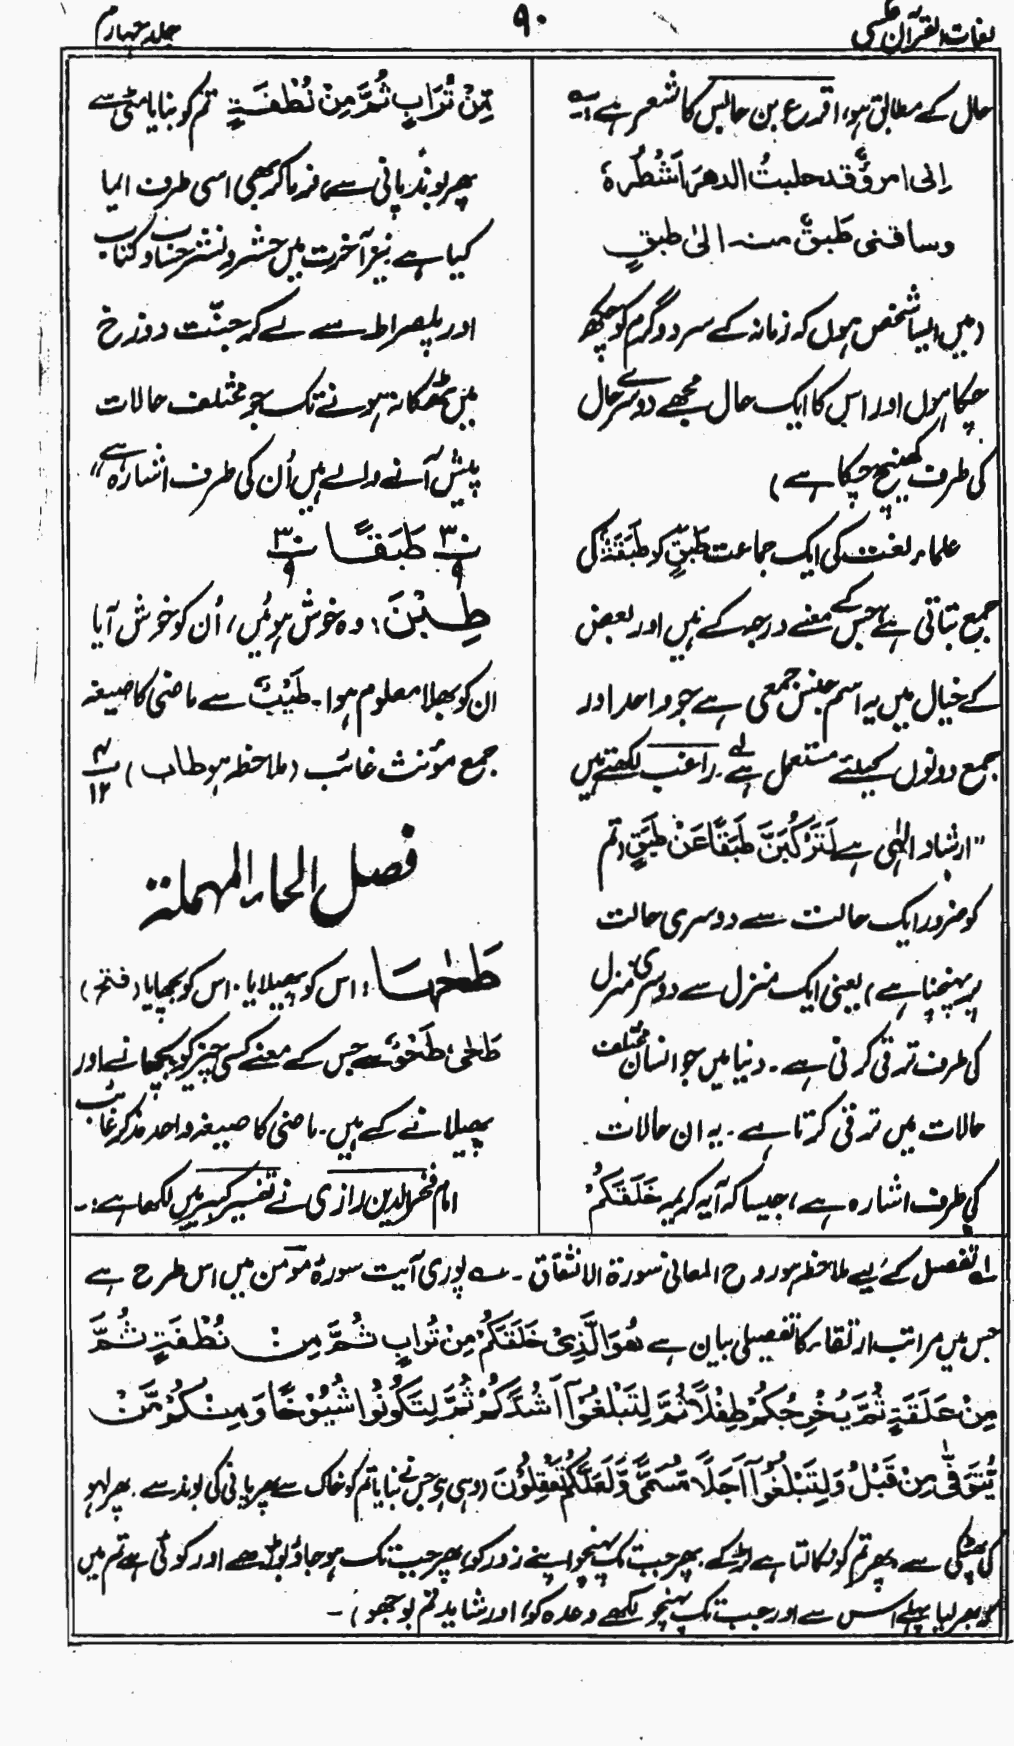 لغات القرآن عکسی
۹۰
جلد چہارم
حال کے مطابق ہو، اقرع بن حابس کا شعر ہے:۔
اِنی امرؤٌ قد حلبتُ الدھرَ اَشْطُرَہٗ
وساقنی طَبقٌ منہ الیٰ طبقٍ
(میں ایسا شخص ہوں کہ زمانہ کے سرد و گرم کو چکھ
چکا ہوں اور اس کا ایک حال مجھے دوسرے حال
کی طرف کھینچ چکا ہے)
علماء لغت کی ایک جماعت طَبَقٍ کو طَبَقَۃٌ کی
جمع بتاتی ہے جس کے معنے درجہ کے ہیں اور بعض
کے خیال میں یہ اسم جنس جمعی ہے جو واحد اور
جمع دونوں کیلئے مستعمل ہے لہ۔ راغب لکھتے ہیں
"ارشاد الٰہی ہے لَتَرْکَبُنَّ طَبَقًا عَنْ طَبَقٍ (تم
کو ضرور ایک حالت سے دوسری حالت
پر پہنچنا ہے) یعنی ایک منزل سے دوسری منزل
کی طرف ترقی کرنی ہے۔ دنیا میں جو انسان مختلف
حالات میں ترقی کرتا ہے۔ یہ ان حالات
کی طرف اشارہ ہے، جیسا کہ آیہ کریمہ خَلَقَکُمْ
مِّنْ تُرَابٍ ثُمَّ مِنْ نُطْفَۃٍ تم کو بنایا مٹی سے
پھر بوند پانی سے، فرما کر بھی اسی طرف ایما
کیا ہے نیز آخرت میں حشر و نشر حساب و کتاب
اور پلصراط سے لے کر جنّت دوزخ
میں ٹھکانہ ہونے تک جو مختلف حالات
پیش آنے والے ہیں اُن کی طرف اشارہ ہے"
۳۰ ۹ طَبَقًا ۳۰ ۹
طِبْنَ: وہ خوش ہوئیں، اُن کو خوش آیا
ان کو بھلا معلوم ہوا۔ طَیْبٌ سے ماضی کا صیغہ
جمع مؤنث غائب (ملاحظہ ہو طاب) ۴ ۱۲
فصل الحاء المہملۃ
طَحٰہَا: اس کو پھیلایا۔ اس کو بچھایا (فتح)
طَحٰی، طَحْوٌ سے جس کے معنے کسی چیز کو بچھانے اور
پھیلانے کے ہیں۔ ماضی کا صیغہ واحد مذکر غائب
امام فخر الدین رازی نے تفسیر کبیر میں لکھا ہے:۔
لہ تفصیل کے لیے ملاحظہ ہو روح المعانی سورۃ الانشقاق۔ پوری آیت سورۂ مؤمن میں اس طرح ہے
جس میں مراتب ارتقاء کا تفصیلی بیان ہے ھُوَ الَّذِیْ خَلَقَکُمْ مِنْ تُرَابٍ ثُمَّ مِنْ نُطْفَۃٍ ثُمَّ
مِنْ عَلَقَۃٍ ثُمَّ یُخْرِجُکُمْ طِفْلًا ثُمَّ لِتَبْلُغُوْآ اَشُدَّکُمْ ثُمَّ لِتَکُوْنُوْا شُیُوْخًا وَ مِنْکُمْ مَّنْ
یُّتَوَفّٰی مِنْ قَبْلُ وَلِتَبْلُغُوْآ اَجَلًا مُّسَمًّی وَّلَعَلَّکُمْ تَعْقِلُوْنَ (وہی ہے جس نے بنایا تم کو خاک سے پھر پانی کی بوند سے۔ پھر لہو
کی پھٹکی سے، پھر تم کو نکالتا ہے لڑکے۔ پھر جب تک پہنچو اپنے زور کو، پھر جب تک ہو جاؤ بوڑھے اور کوئی ہے تم میں
کہ بھر لیا پہلے اس سے اور جب تک پہنچو لکھے وعدہ کو، اور شاید تم بوجھو)۔